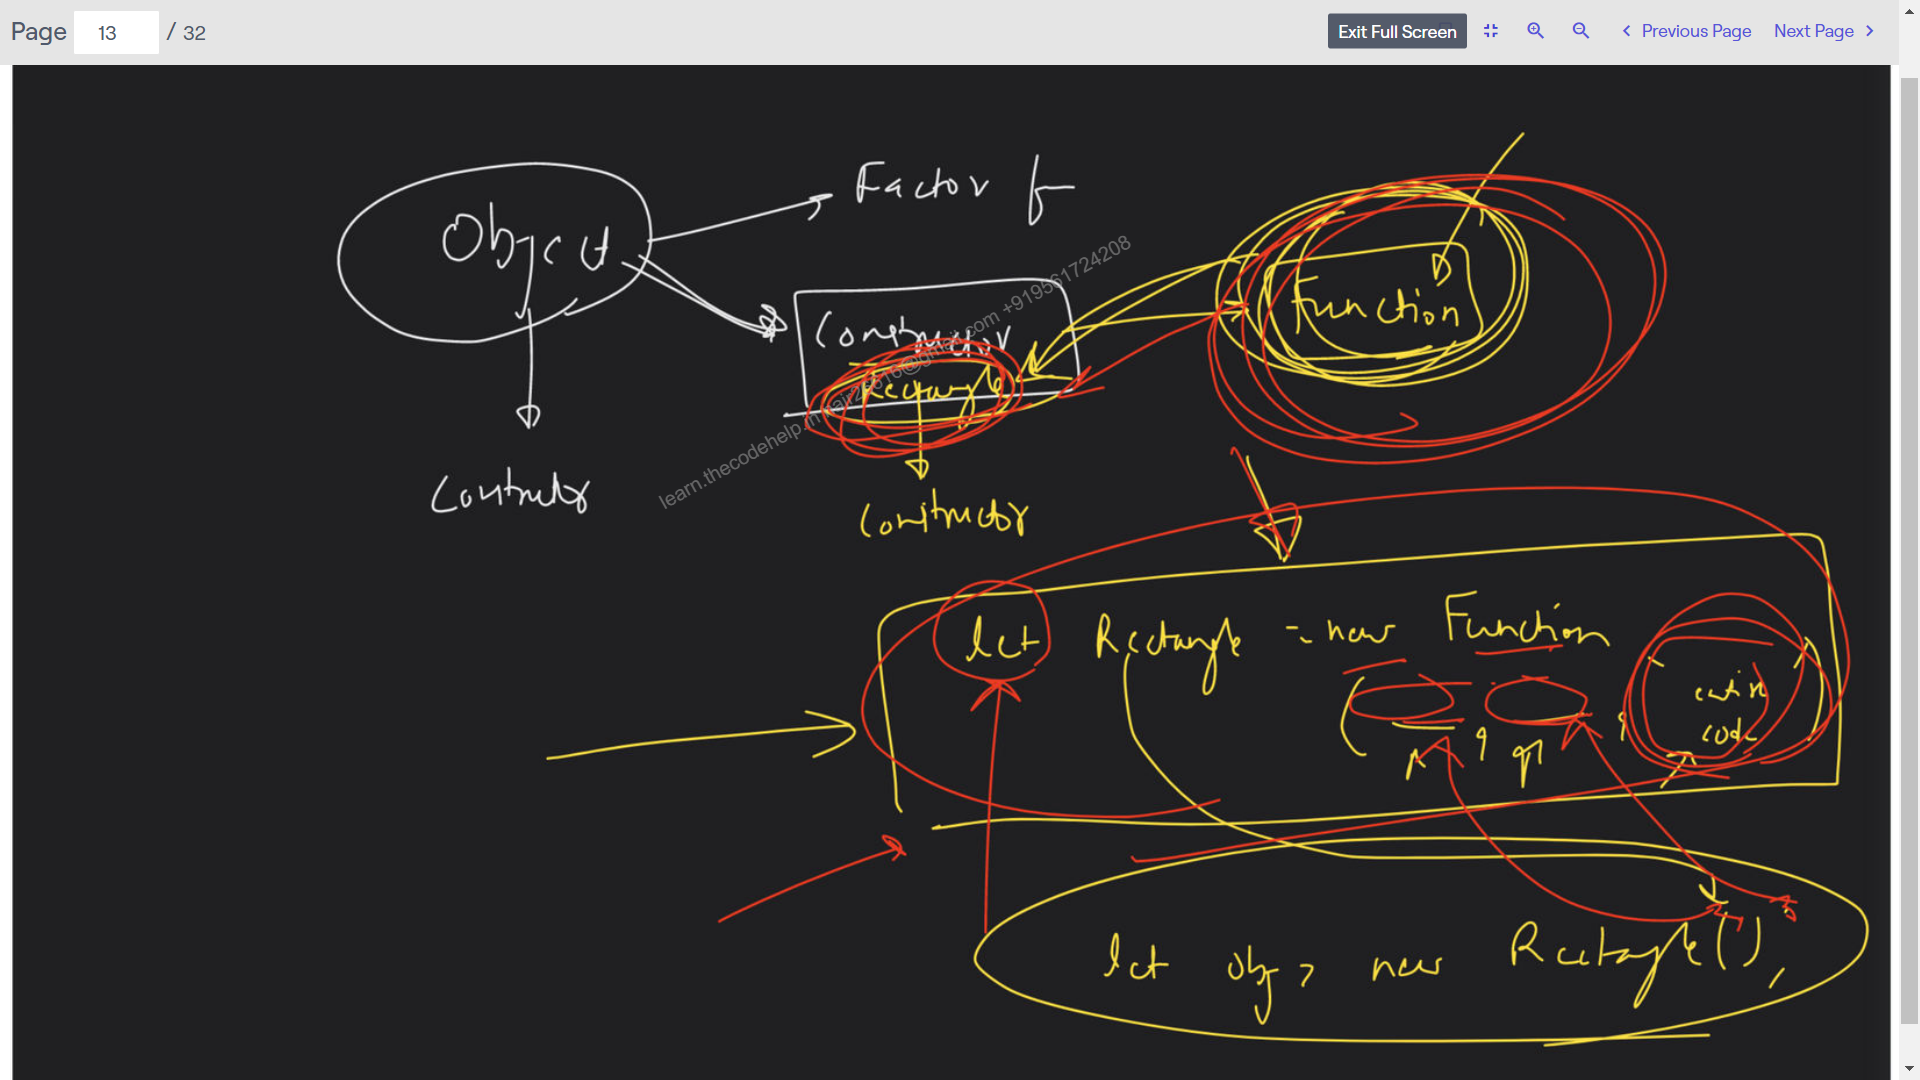 Page 13 / 32
Exit Full Screen
Previous Page
Next Page
Object
Factor f
Constructor
Rectangle
Function
Constructor
learn.thecodehelp.in
@gmail.com +919561724208
let Rectangle = new Function
( , , entire
code )
let obj = new Rectangle();